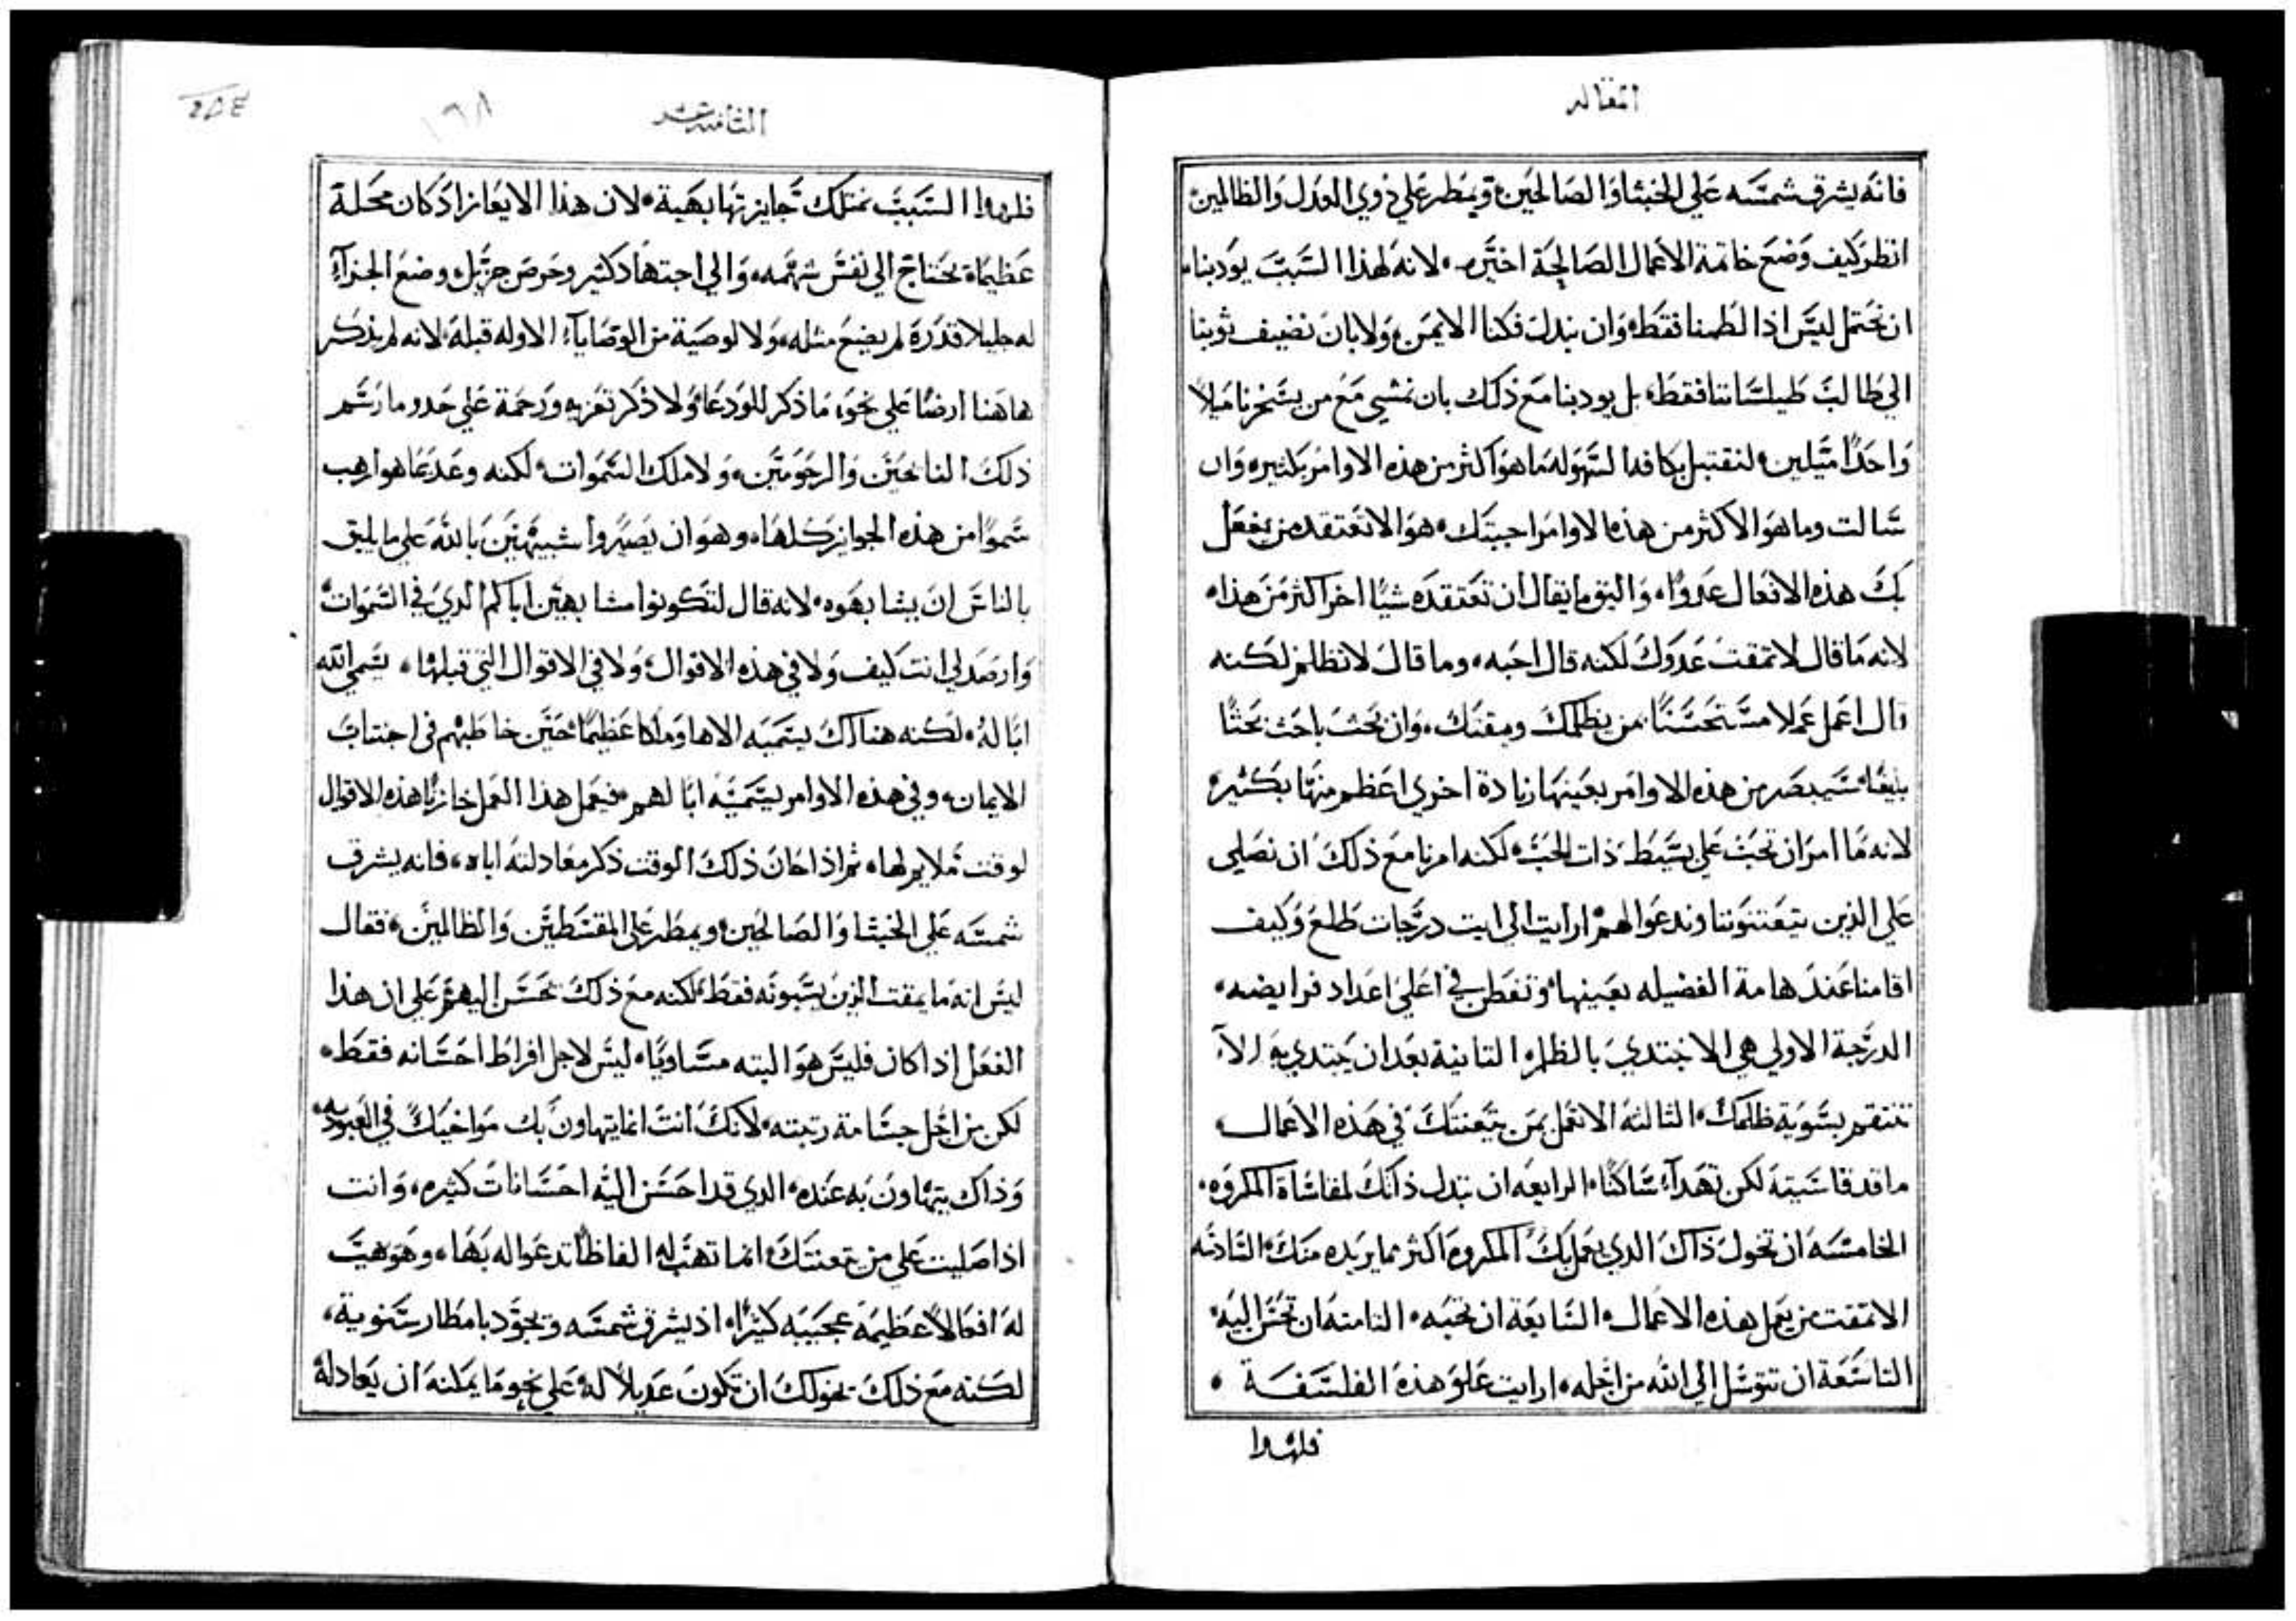 المقاله
فانه يشرق شمسه علي الخبثا والصالحين ويمطر علي ذوي العدل والظالمين
انظر كيف وضع خاتمة الاعمال الصالحة اخيره لانه لهذا السبب يودبنا
ان نحتمل ليس اذا لطمنا فقط وان نبدل فكنا الايمن ولا بان نضيف ثوبنا
الي طالب طيلساننا فقط بل يودبنا مع ذلك بان نمشي مع من يسخرنا ميلاً
واحداً ميلين لنقتبل بكافة السهوله ما هو اكثر من هذه الاوامر بكثير وان
سالت وما هو الاكثر من هذه الاوامر اجبتك هو الا تعتقد من يفعل
بك هذه الافعال عدواً واليق ما يقال ان تعتقده شياً اخر اكثر من هذا
لانه ما قال لا تمقت عدوك لكنه قال احبه وما قال لا تظلم لكنه
قال اعمل عملا مستحسناً من يظلمك ويمقتك وان بحث باحث بحثاً
بليغاً سيبصر من هذه الاوامر بعينها زيادة اخري اعظم منها بكثير
لانه ما امر ان تحب علي بسيط ذات الحب لكنه امرنا مع ذلك ان نصلي
علي الذين يتعنتونا وندعوا لهم ارايت الي ايت درجات طلع وكيف
اقامنا عند هامة الفضيله بعينها وتفطن في اعلي اعداد فرايضه
الدرجة الاولي هي الا تبتدي بالظلم الثانية بعد ان يبتدي به الا
تنتقم بسوية ظلمك الثالثة الا تعمل بمن يتعنتك في هذه الاعمال
ما قد قاسيته لكن تهدآ ساكناً الرابعه ان تبدل ذاتك لمقاساة المكروه
الخامسه ان تخول ذاك الذي يعمل بك المكروه اكثر مما يريده منك السادسه
الا تمقت من يعمل هذه الاعمال السابعة ان تحبه الثامنه ان تحسن اليه
التاسعة ان تتوسل الي الله من اجله ارايت علو هذه الفلسفة
فلهذا
الثامنه عشر
١٦٨
فلهذا السبب تمتلك جايزتها بهية لان هذا الايعاز اذ كان محله
عظيماً يحتاج الي نفس شهمه والي اجتهاد كثير وحرص جزيل وضع الجزآ
له جليلا قدره لم يضع مثله ولا لوصية من الوصايآ الاوله قبله لانه لم يذكر
هاهنا ارضاً علي نحو ما ذكر للودعا ولا ذكر تعزيه ورحمة علي حدو ما رسم
ذلك النايحين والرحومين ولا ملك السموات لكنه وعد بما هو ارهب
سمواً من هذه الجوايز كلها وهو ان يصيروا شبيهين بالله علي ما يليق
بالناس ان يشابهوه لانه قال لتكونوا مشابهين اباكم الذي في السموات
وارصد لي انت كيف ولا في هذه الاقوال ولا في الاقوال التي قبلها يسمي الله
ابا له لكنه هناك يسميه الاها وملكا عظيماً حين خاطبهم في اجتناب
الايمان وفي هذه الاوامر يسميه ابا لهم فيعمل هذا العمل خازناً هذه الاقوال
لوقت ملايم لها ثم اذا حان ذلك الوقت ذكر معادلته اباه فانه يشرق
شمسه علي الخبثا والصالحين ويمطر علي المقسطين والظالمين فقال
ليس انه ما يمقت الذين يسبونه فقط لكنه مع ذلك يحسن اليهم علي ان هذا
الفعل اذا كان فليس هو البته مساوياً ليس لاجل افراط احسانه فقط
لكن من اجل جسامة رتبته لانك انت انما يتهاون بك مواخيك في العبوديه
وذاك يتهاون به عنده الذي قد احسن اليه احسانات كثيره وانت
اذا صليت علي من يتعنتك انما تهب له الفاظاً تدعوا له بها وهو يهب
له افعالاً عظيمة عجيبه كثيراً اذ يشرق شمسه ويجود بامطار سنوية
لكنه مع ذلك يخولك ان تكون عديلاً له علي نحو ما يمكنه ان يعادله